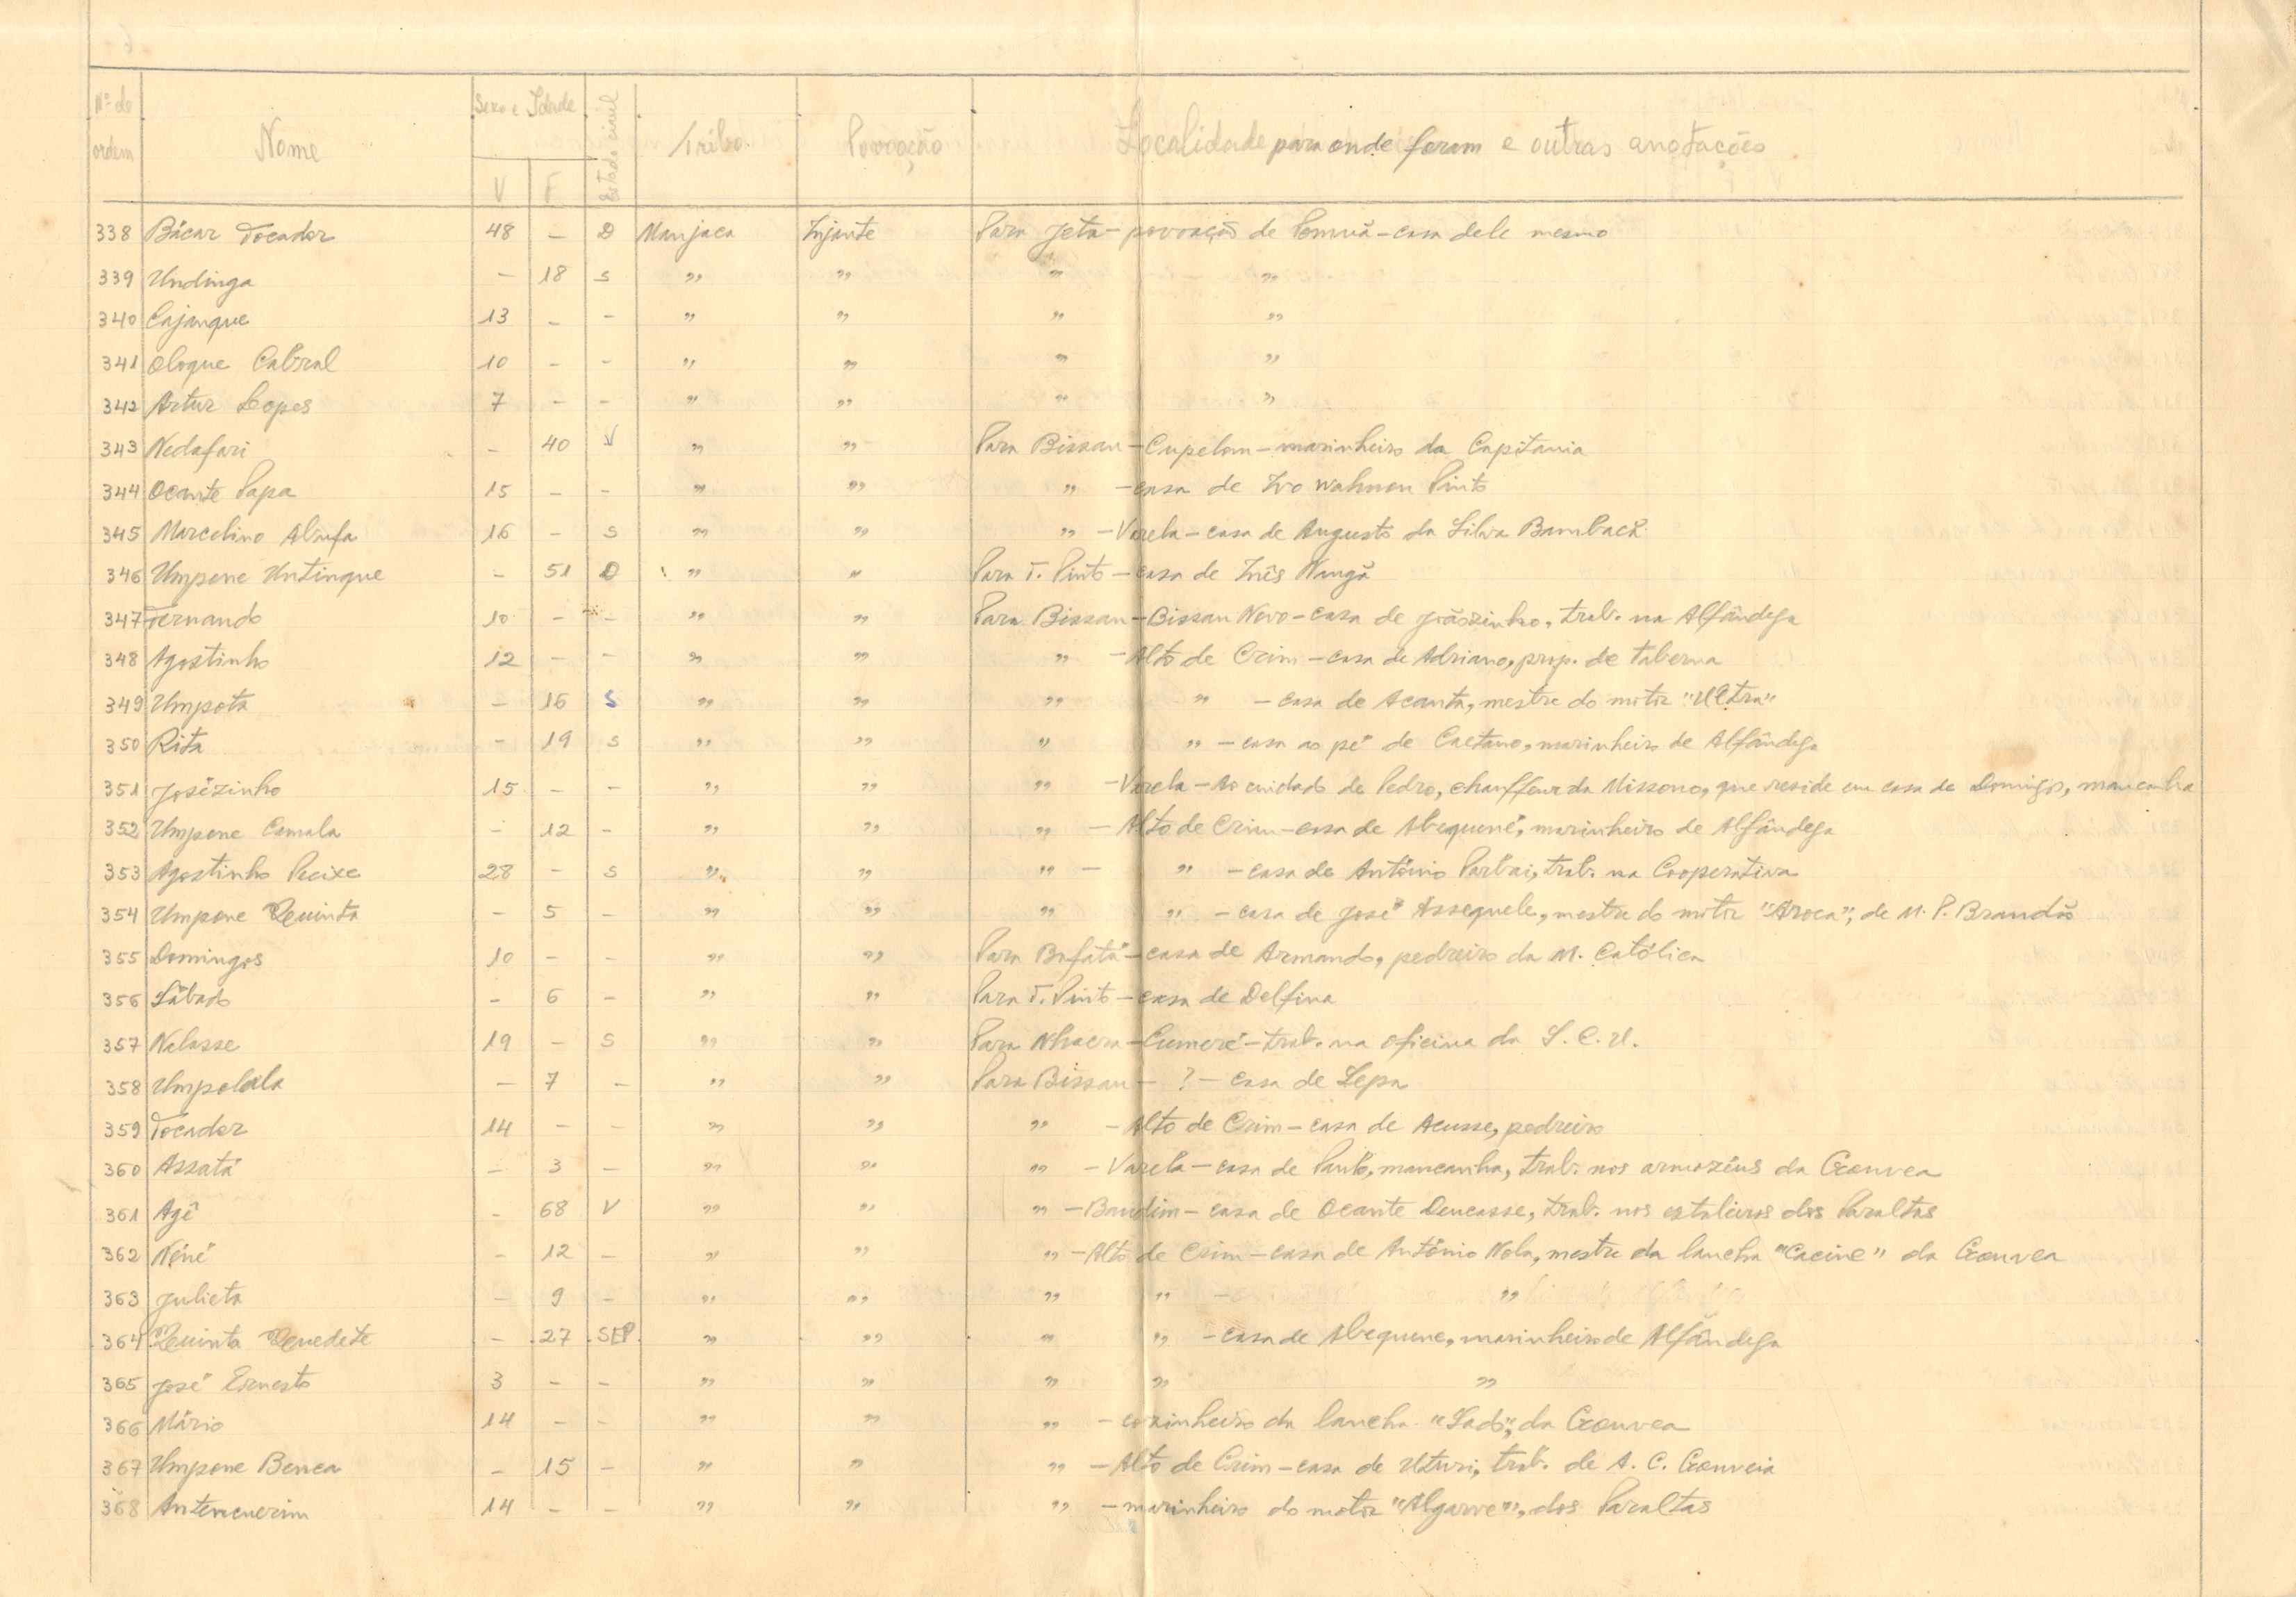 Nº de ordem Nome Sexo e Idade V F Estado civil Tribo Povoação Localidade para onde foram e outras anotações
338 Bácar Tocador 48 – D Manjaca Injante Para Jeta – povoação de Pomuã – casa dele mesmo
339 Undinga – 18 S " " " "
340 Cajanque 13 – – " " " "
341 Oloque Cabral 10 – – " " " "
342 Artur Lopes 7 – – " " " "
343 Nedafari – 40 V " " Para Bissau – Cupelom – marinheiro da Capitania
344 Ocante Papa 15 – – " " " – casa de Ivo Wahnon Pinto
345 Marcelino Abufa 16 – S " " " – Varela – casa de Augusto da Silva Bambacã
346 Umpone Untinque – 51 D " " Para T. Pinto – casa de Inês Nangã
347 Fernando 10 – – " " Para Bissau – Bissau Novo – casa de Joãozinho, trab. na Alfândega
348 Agostinho 12 – – " " " – Alto de Crim – casa de Adriano, prop. de taberna
349 Umpota – 16 S " " " " – casa de Acanta, mestre do motor "Ultra"
350 Rita – 19 S " " " " – casa ao pé de Caetano, marinheiro de Alfândega
351 Josézinho 15 – – " " " – Varela – Ao cuidado de Pedro, chauffeur da Missono, que reside em casa de Domingos, mancanha
352 Umpone Camala – 12 – " " " – Alto de Crim – casa de Abequené, marinheiro de Alfândega
353 Agostinho Peixe 28 – S " " " – " – casa de António Parbai, trab. na Cooperativa
354 Umpone Quinta – 5 – " " " " – casa de José Assequele, mestre do motor "Aroca", de M. P. Brandão
355 Domingos 10 – – " " Para Bafatá – casa de Armando, pedreiro da M. Católica
356 Sábado – 6 – " " Para T. Pinto – casa de Delfina
357 Nelasse 19 – S " " Para Nhacra – Cumeré – trab. na oficina da S. C. U.
358 Umpolala – 7 – " " Para Bissau – ? – casa de Lepa
359 Tocador 14 – – " " " – Alto de Crim – casa de Acusse, pedreiro
360 Assatá – 3 – " " " – Varela – casa de Paulo, mancanha, trab. nos armazéns da Gouvea
361 Agê – 68 V " " " – Bandim – casa de Ocante Deucasse, trab. nos estaleiros dos Paraltas
362 Néné – 12 – " " " – Alto de Crim – casa de António Nola, mestre da lancha "Cacine" da Gouvea
363 Julieta – 9 – " " " " – "
364 Quinta Benedete – 27 SEP. " " " " – casa de Abequene, marinheiro de Alfândega
365 José Ernesto 3 – – " " " " "
366 Mário 14 – – " " " – cozinheiro da lancha "Sado", da Gouvea
367 Umpone Benea – 15 – " " " – Alto de Crim – casa de Uturi, trab. de A. C. Gouveia
368 Antenenerim 14 – – " " " – marinheiro do motor "Algarve", dos Paraltas